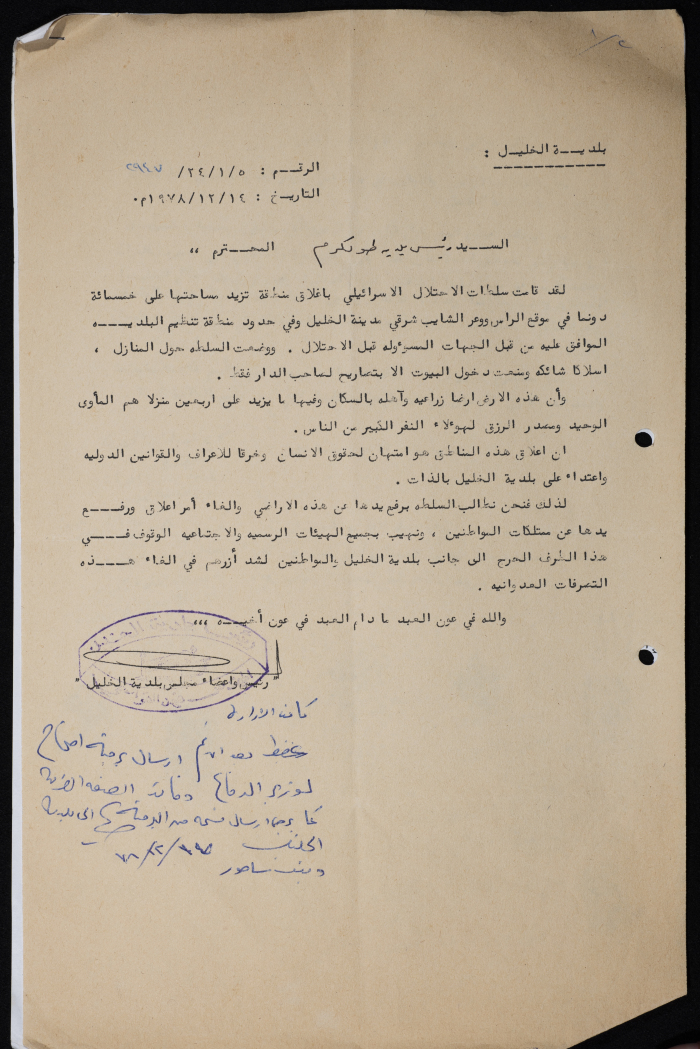 ١/٢
بلديـــة الخليـل :
الرقـــم : ٢٤/١/٥/ ٢٩٤٧
التاريـخ : ١٩٧٨/١٢/١٤م٠
الســيد رئيس بلدية طولكرم المحــترم ،،
لقد قامت سلطات الاحتلال الاسرائيلي باغلاق منطقة تزيد مساحتها على خمسمائة
دونما في موقع الراس ووعر الشايب شرقي مدينة الخليل وفي حدود منطقة تنظيم البلديـــه
الموافق عليه من قبل الجهات المسوءوله قبل الاحتلال . ووضعت السلطه حول المنازل ،
اسلاكا شائكه ومنعت دخول البيوت الا بتصاريح لصاحب الدار فقط .
وأن هذه الارض ارضا زراعيه وآهله بالسكان وفيها ما يزيد على اربعين منزلا هم المأوى
الوحيد ومصدر الرزق لهوءلاء النفر الكبير من الناس .
ان اغلاق هذه المناطق هو امتهان لحقوق الانسان وخرقا للاعراف والقوانين الدوليه
واعتداء على بلدية الخليل بالذات .
لذلك فنحن نطالب السلطه برفع يدها عن هذه الاراضي والغاء أمر اغلاق ورفـــع
يدها عن ممتلكات المواطنين ، ونهيب بجميع الهيئات الرسميه والاجتماعيه الوقوف فـــي
هذا الظرف الحرج الى جانب بلدية الخليل والمواطنين لشد أزرهم في الغاء هـــذه
التصرفات العدوانيه .
والله في عون العبد ما دام العبد في عون أخيـــه ،،،
" رئيس واعضاء مجلس بلدية الخليل "
ارسال برقية احتجاج
لوزير الدفاع وقائد الضفة الغربية
كما يرجى ارسال نسخه من البرقية الى بلدية
الخليل
وبيت ساحور